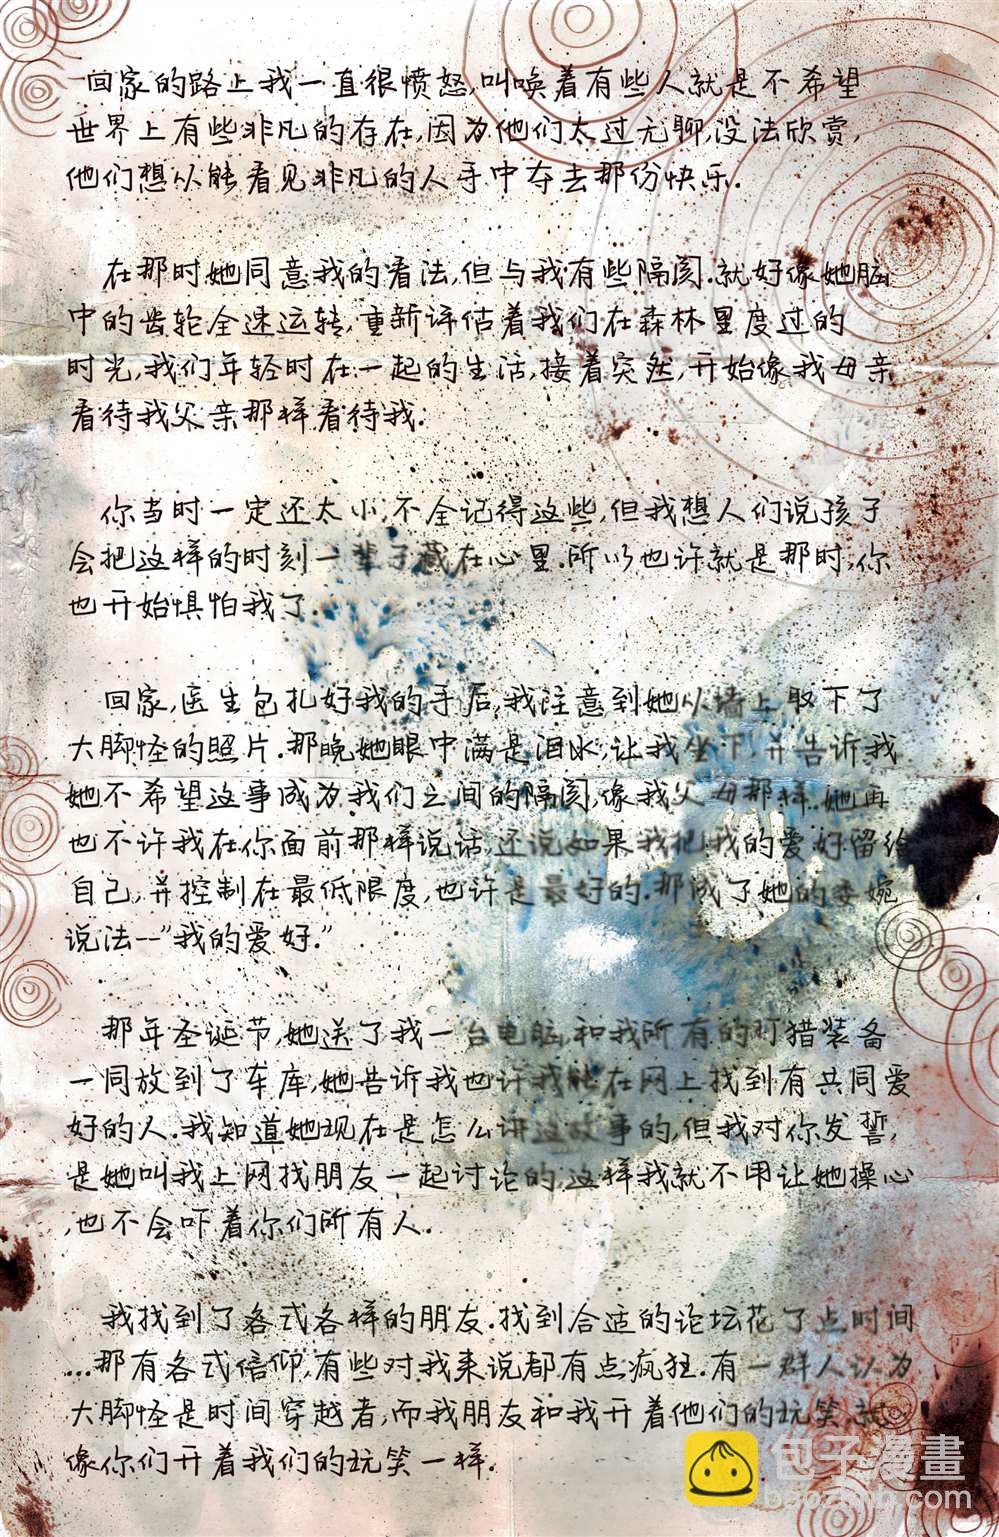 回家的路上我一直很愤怒,叫唤着有些人就是不希望
世界上有些非凡的存在,因为他们太过无聊,没法欣赏,
他们想从能看见非凡的人手中夺去那份快乐.
在那时她同意我的看法,但与我有些隔阂.就好像她脑
中的齿轮全速运转,重新评估着我们在森林里度过的
时光,我们年轻时在一起的生活,接着突然,开始像我母亲
看待我父亲那样看待我.
你当时一定还太小,不全记得这些,但我想人们说孩子
会把这样的时刻一辈子藏在心里.所以也许就是那时,你
也开始惧怕我了.
回家,医生包扎好我的手后,我注意到她从墙上取下了
大脚怪的照片.那晚她眼中满是泪水,让我坐下,并告诉我
她不希望这事成为我们之间的隔阂,像我父母那样.她再
也不许我在你面前那样说话,还说如果我把我的爱好留给
自己,并控制在最低限度,也许是最好的.那成了她的委婉
说法--"我的爱好."
那年圣诞节,她送了我一台电脑,和我所有的打猎装备
一同放到了车库,她告诉我也许我能在网上找到有共同爱
好的人.我知道她现在是怎么讲这故事的,但我对你发誓,
是她叫我上网找朋友一起讨论的,这样我就不用让她操心
,也不会吓着你们所有人.
我找到了各式各样的朋友.找到合适的论坛花了点时间
...那有各式信仰,有些对我来说都有点疯狂.有一群人认为
大脚怪是时间穿越者,而我朋友和我开着他们的玩笑,就
像你们开着我们的玩笑一样.
包子漫畫
baozimh.com